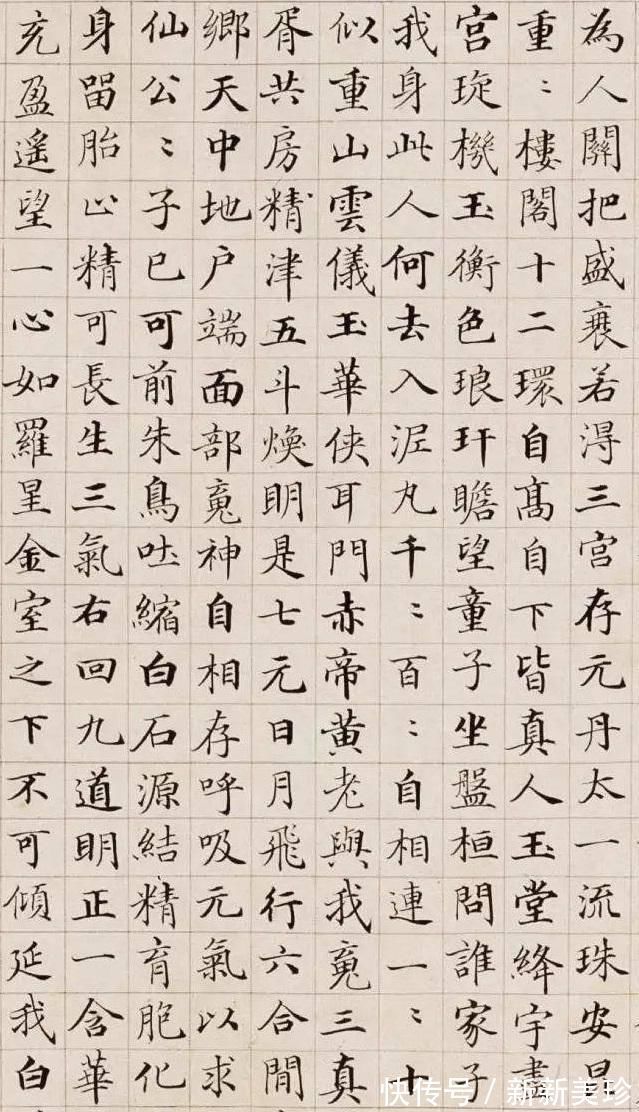 為人關把盛衰若淂三宮存元丹太一流珠安昆
重〻樓閣十二環自髙自下皆真人玉堂絳宇盡
宮琁機玉衡色琅玕瞻望童子坐盤桓問誰家子
我身此人何去入泥丸千〻百〻自相連一〻十
似重山雲儀玉華俠耳門赤帝黃老與我䰟三真
胥共房精津五斗煥明是七元日月飛行六合間
鄉天中地户端面部䰟神自相存呼吸元氣以求
仙公〻子已可前朱鳥吐縮白石源結精育胞化
身留胎止精可長生三氣右回九道明正一含華
充盈遙望一心如羅星金室之下不可傾延我白
快传号 / 新新美珍